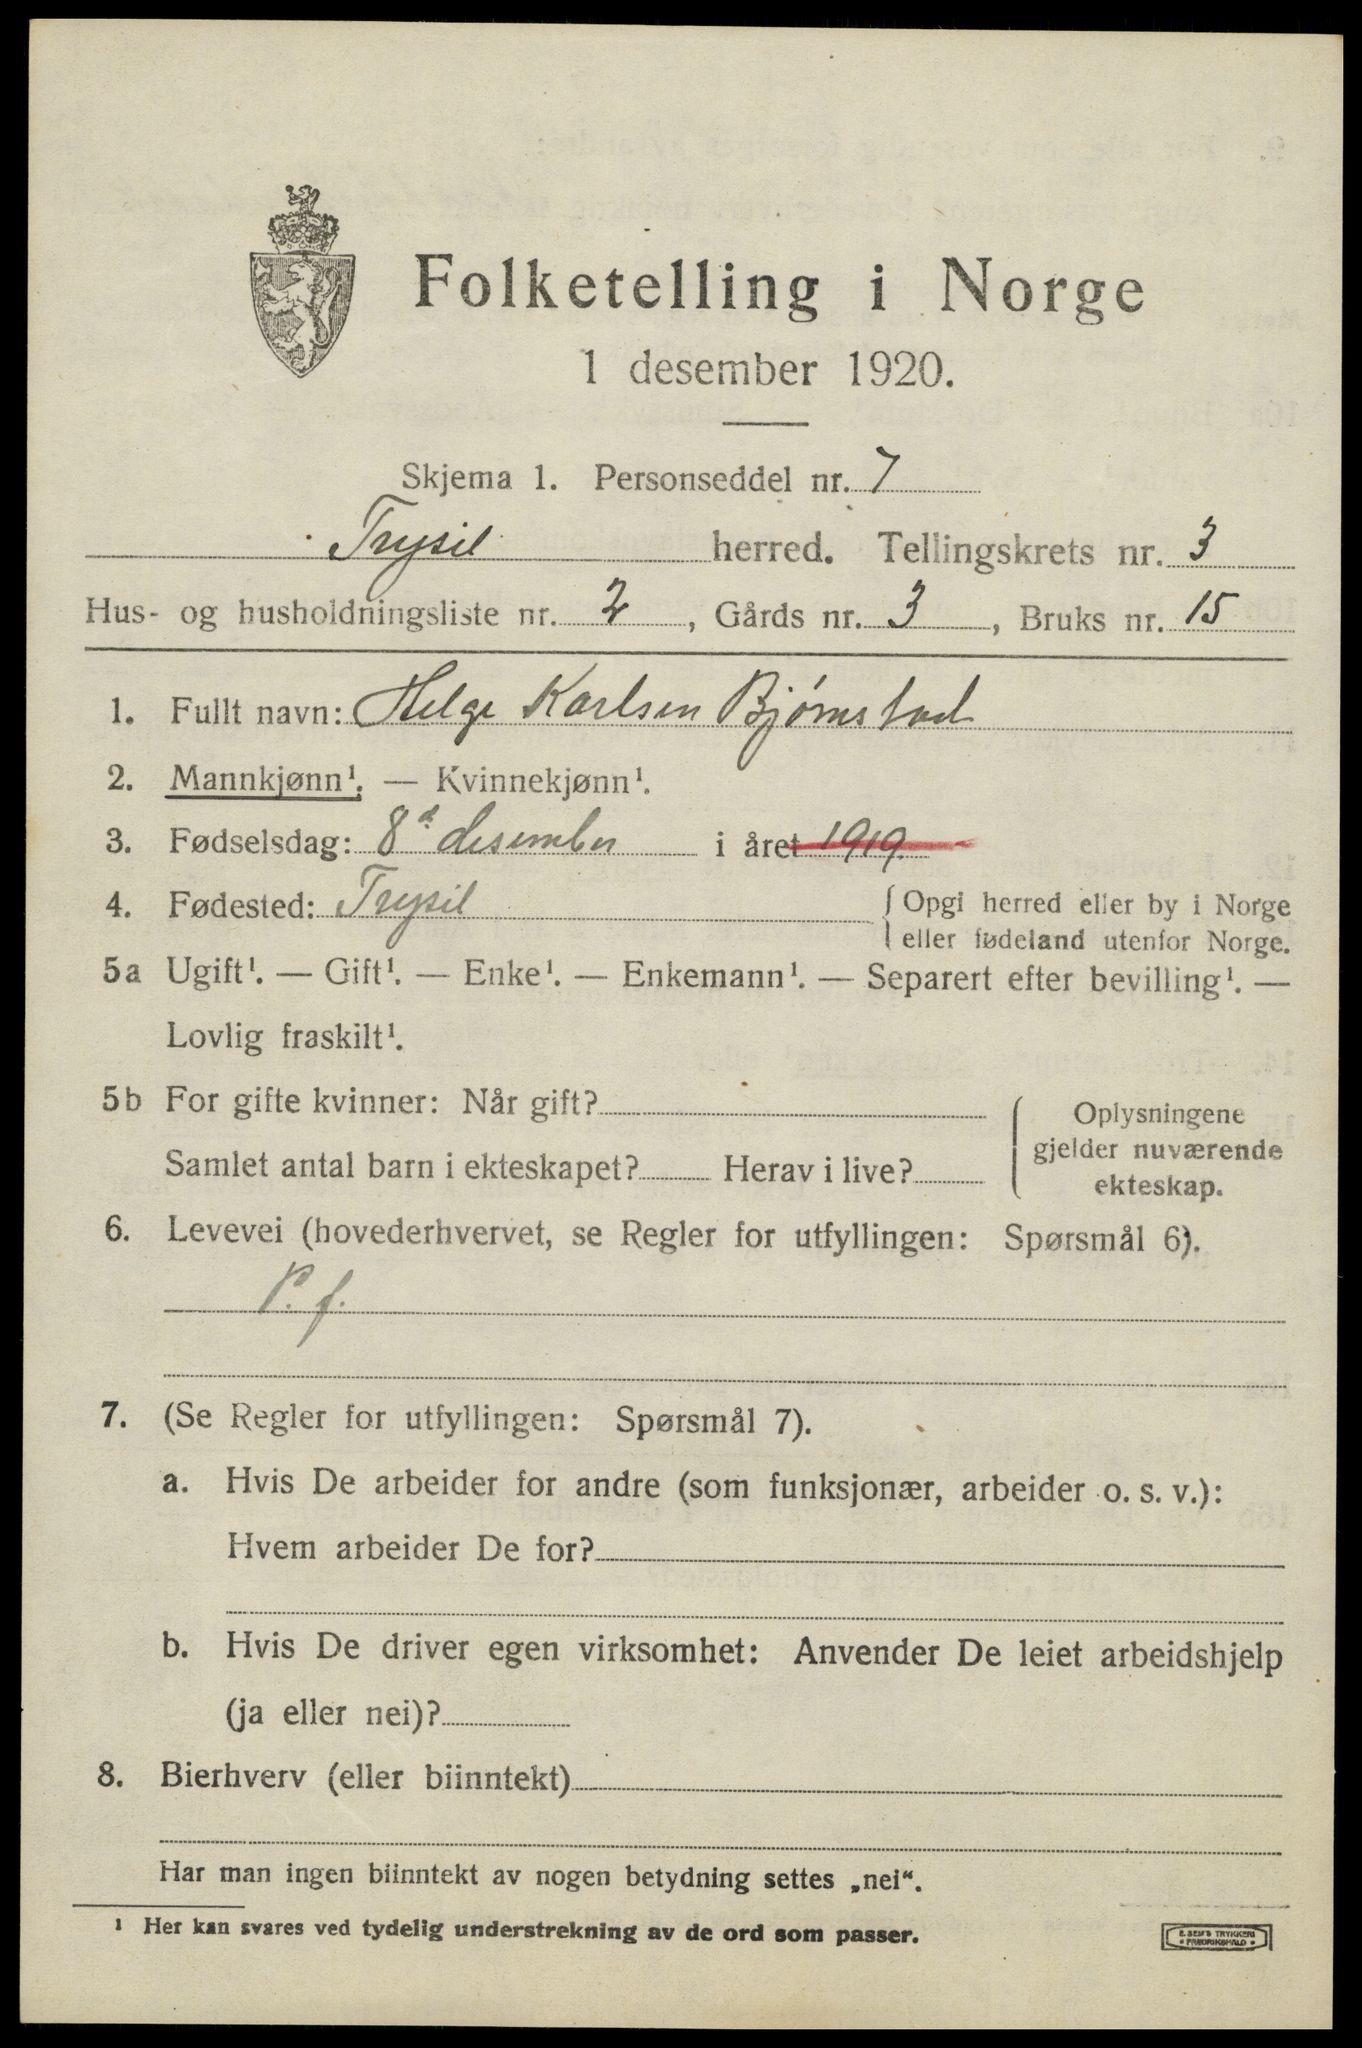 Folketelling i Norge
1 desember 1920.
Skjema 1. Personseddel nr. 7
Trysil herred. Tellingskrets nr. 3
Hus- og husholdningsliste nr. 2, Gårds nr. 3, Bruks nr. 15
1. Fullt navn: Helge Karlsen Bjørnstad
2. Mannkjønn¹. — Kvinnekjønn¹.
3. Fødselsdag: 8d desember i året 1919.
4. Fødested: Trysil { Opgi herred eller by i Norge
eller fødeland utenfor Norge.
5a Ugift¹. — Gift¹. — Enke¹. — Enkemann¹. — Separert efter bevilling¹. —
Lovlig fraskilt¹.
5b For gifte kvinner: Når gift?
Samlet antal barn i ekteskapet? Herav i live?
Oplysningene
gjelder nuværende
ekteskap.
6. Levevei (hovederhvervet, se Regler for utfyllingen: Spørsmål 6).
P. f.
7. (Se Regler for utfyllingen: Spørsmål 7).
a. Hvis De arbeider for andre (som funksjonær, arbeider o. s. v.):
Hvem arbeider De for?
b. Hvis De driver egen virksomhet: Anvender De leiet arbeidshjelp
(ja eller nei)?
8. Bierhverv (eller biinntekt)
Har man ingen biinntekt av nogen betydning settes „nei“.
¹ Her kan svares ved tydelig understrekning av de ord som passer.
E. SEM'S TRYKKERI
• FREDRIKSHALD •